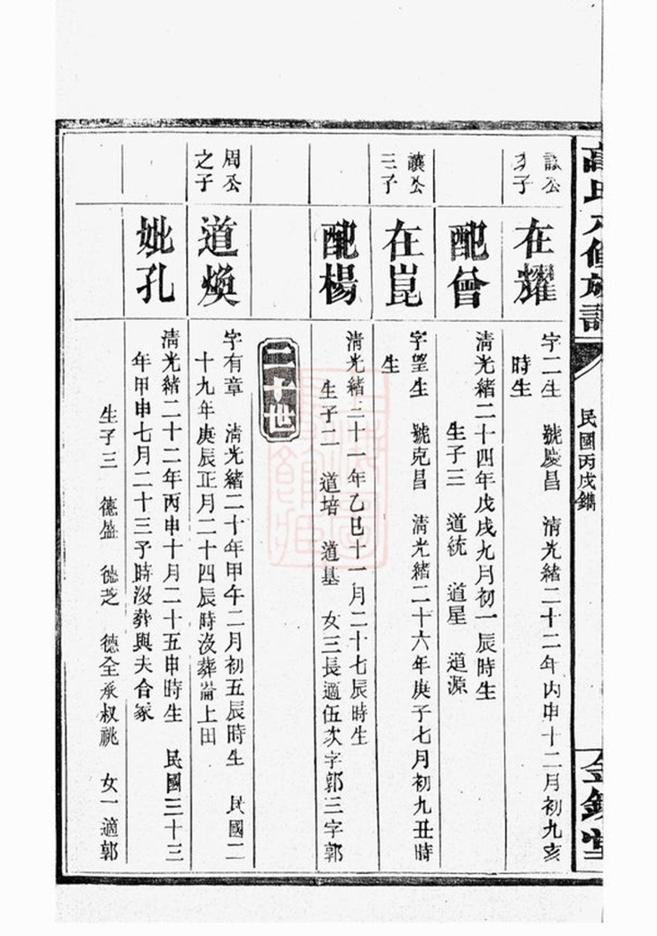 高氏八修族譜
民國丙戌鐫
公
子
在耀
字二生　號慶昌　清光緒二十二年丙申十二月初九亥
時生
配曾
清光緒二十四年戊戌九月初一辰時生
生子三　道統　道星　道源
讓公
三子
在崑
字望生　號克昌　清光緒二十六年庚子七月初九丑時
生
配楊
清光緒三十一年乙巳十一月二十七辰時生
生子二　道培　道基　女三長適伍次字郭三字郭
二十世
周公
之子
道煥
字有章　清光緒二十年甲午二月初五辰時生　民國二
十九年庚辰正月二十四辰時沒葬崙上田
妣孔
清光緒二十二年丙申十月二十五申時生　民國三十三
年甲申七月二十三子時沒葬與夫合冢
生子三　德盛　德芝　德全承叔祧　女一適郭